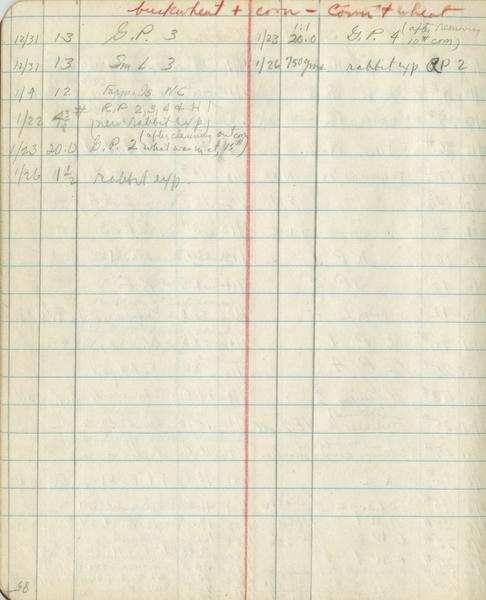 buckwheat + corn - Corn + wheat
12/31 13 G.P. 3
12/31 13 Sm L. 3
1/9 12 NC
1/22 4 3/4 # R.P 2, 3, 4 & H1
(new rabbit exp)
1/23 20.0 G.P. 2 (after cleaning out
what was in it, 15#)
1/26 1 1/2 rabbit exp.
1:1
1/23 20.0 G.P. 4 (after removing
10# corn)
1/26 750 gms rabbit exp RP 2
58